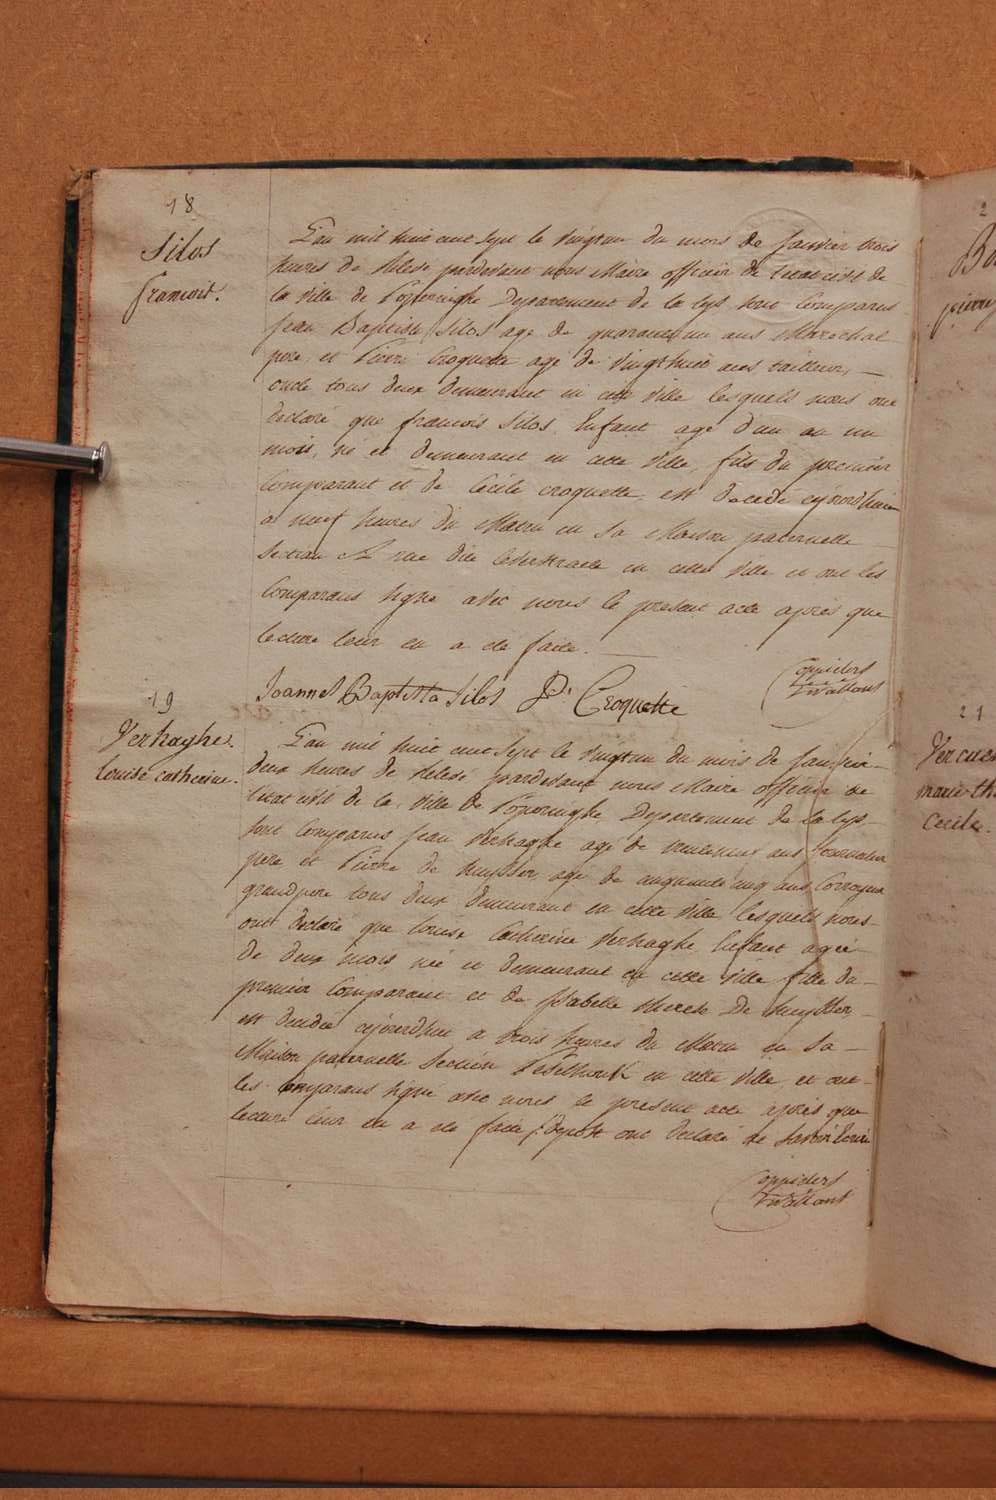 18
Silos
francois.
L'an mil huit cent sept le vingtun du mois de janvier trois
heures de relevé pardevant nous Maire officier de l'etat civil de
la ville de Poperinghe Departement de la lys, sont Comparus
Jean Baptiste Silos agé de quarantun ans Marechal
pere et Pierre Croquette agé de vingthuit ans tailleur, —
oncle tous deux demeurant en cette ville lesquels nous ont
declaré que francois Silos, Enfant agé d'un an un
mois, né et demeurant en cette ville, fils du premier
Comparant et de Cecile croquette, est decedé cejourd'huir
à neuf heures du Matin en sa Maison paternelle
Section rue dite en cette ville et ont les
Comparans signé avec nous le present acte après que
lecture leur en a eté faite. —
Joannes Baptista Silos P. Croquette
oppiders
19
Verhaghe.
louise catherine.
L'an mil huit cent sept le vingtun du mois de janvier
deux heures de relevé pardevant nous Maire officier de
l'etat civil de la ville de Poperinghe Departement de la lys,
sont Comparus Jean Verhaghe agé de ans Journalier
pere et Pierre de agé de cinquante cinq ans Corroyeur
grandpere tous deux demeurant en cette ville lesquels nous
ont declaré que louise Catherine Verhaghe, Enfant agée
de deux mois née et demeurant en cette ville fille du
premier Comparant et de Isabelle therese De
est decedée cejourdhui a trois heures du Matin en sa —
Maison paternelle Section en cette ville, et ont
les Comparans signé avec nous le present acte après que
lecture leur en a eté faite ont declaré de savoir Ecrire
oppiders
2
21
Vercru
marie th
Cecile.